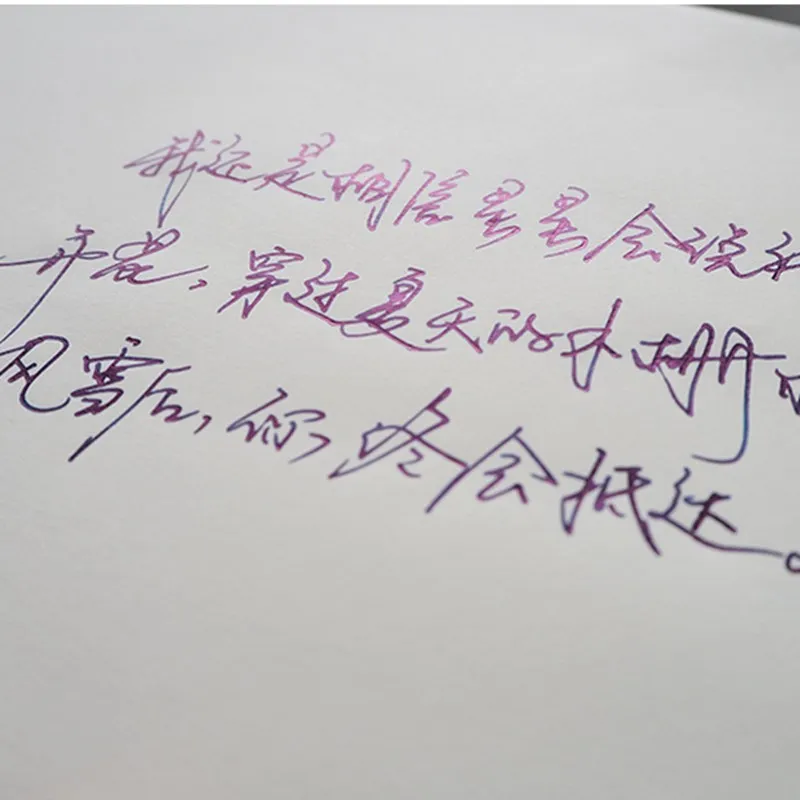 我还是相信星星会说
开花，穿过夏天的木栅
风雪后，你终会抵达。